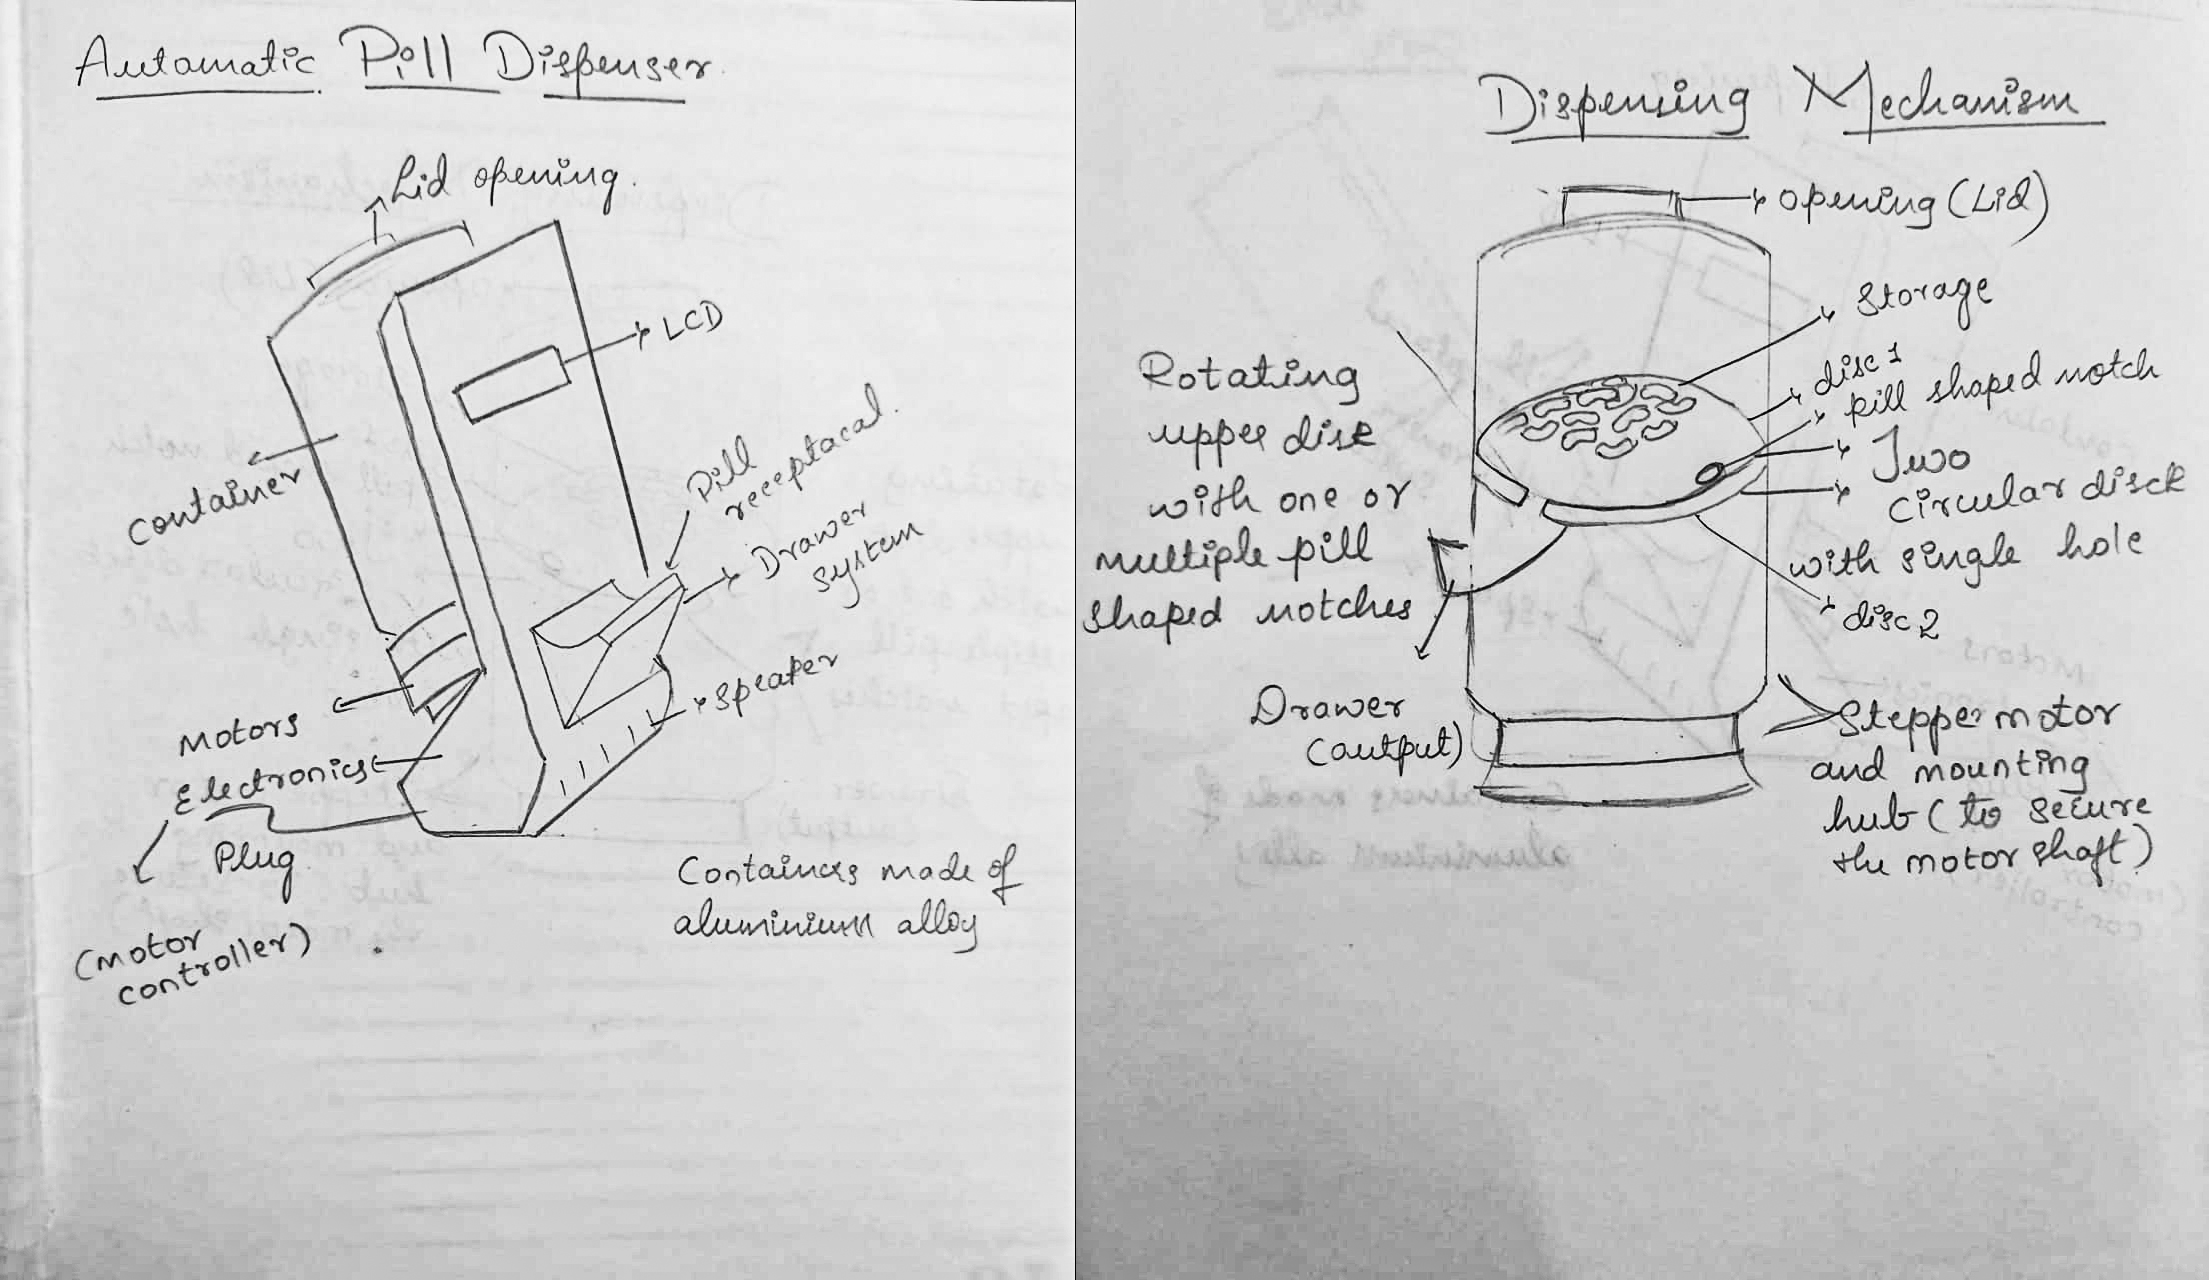 Automatic Pill Dispenser.
Lid opening.
LCD
Container
Pill
receptacal.
Drawer
system
Speaker
Motors
Electronics
Plug
(motor
controller)
Containers made of
aluminium alloy
Dispensing Mechanism
opening (Lid)
Storage
disc 1
pill shaped notch
Two
circular disck
with single hole
disc 2
Rotating
upper disk
with one or
multiple pill
shaped notches
Drawer
(output)
Stepper motor
and mounting
hub (to secure
the motor shaft)